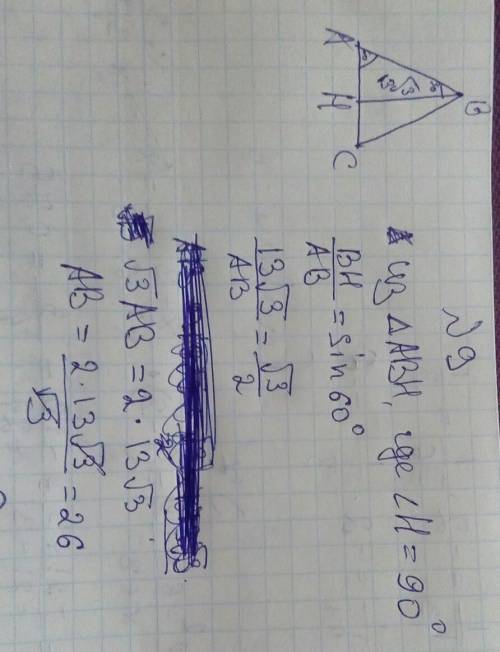 № 9
B
60
30
13√3
A H C
Из △ABH, где ∠H = 90°
BH/AB = sin 60°
13√3/AB = √3/2
√3 AB = 2 · 13√3
AB = 2 · 13√3/√3 = 26